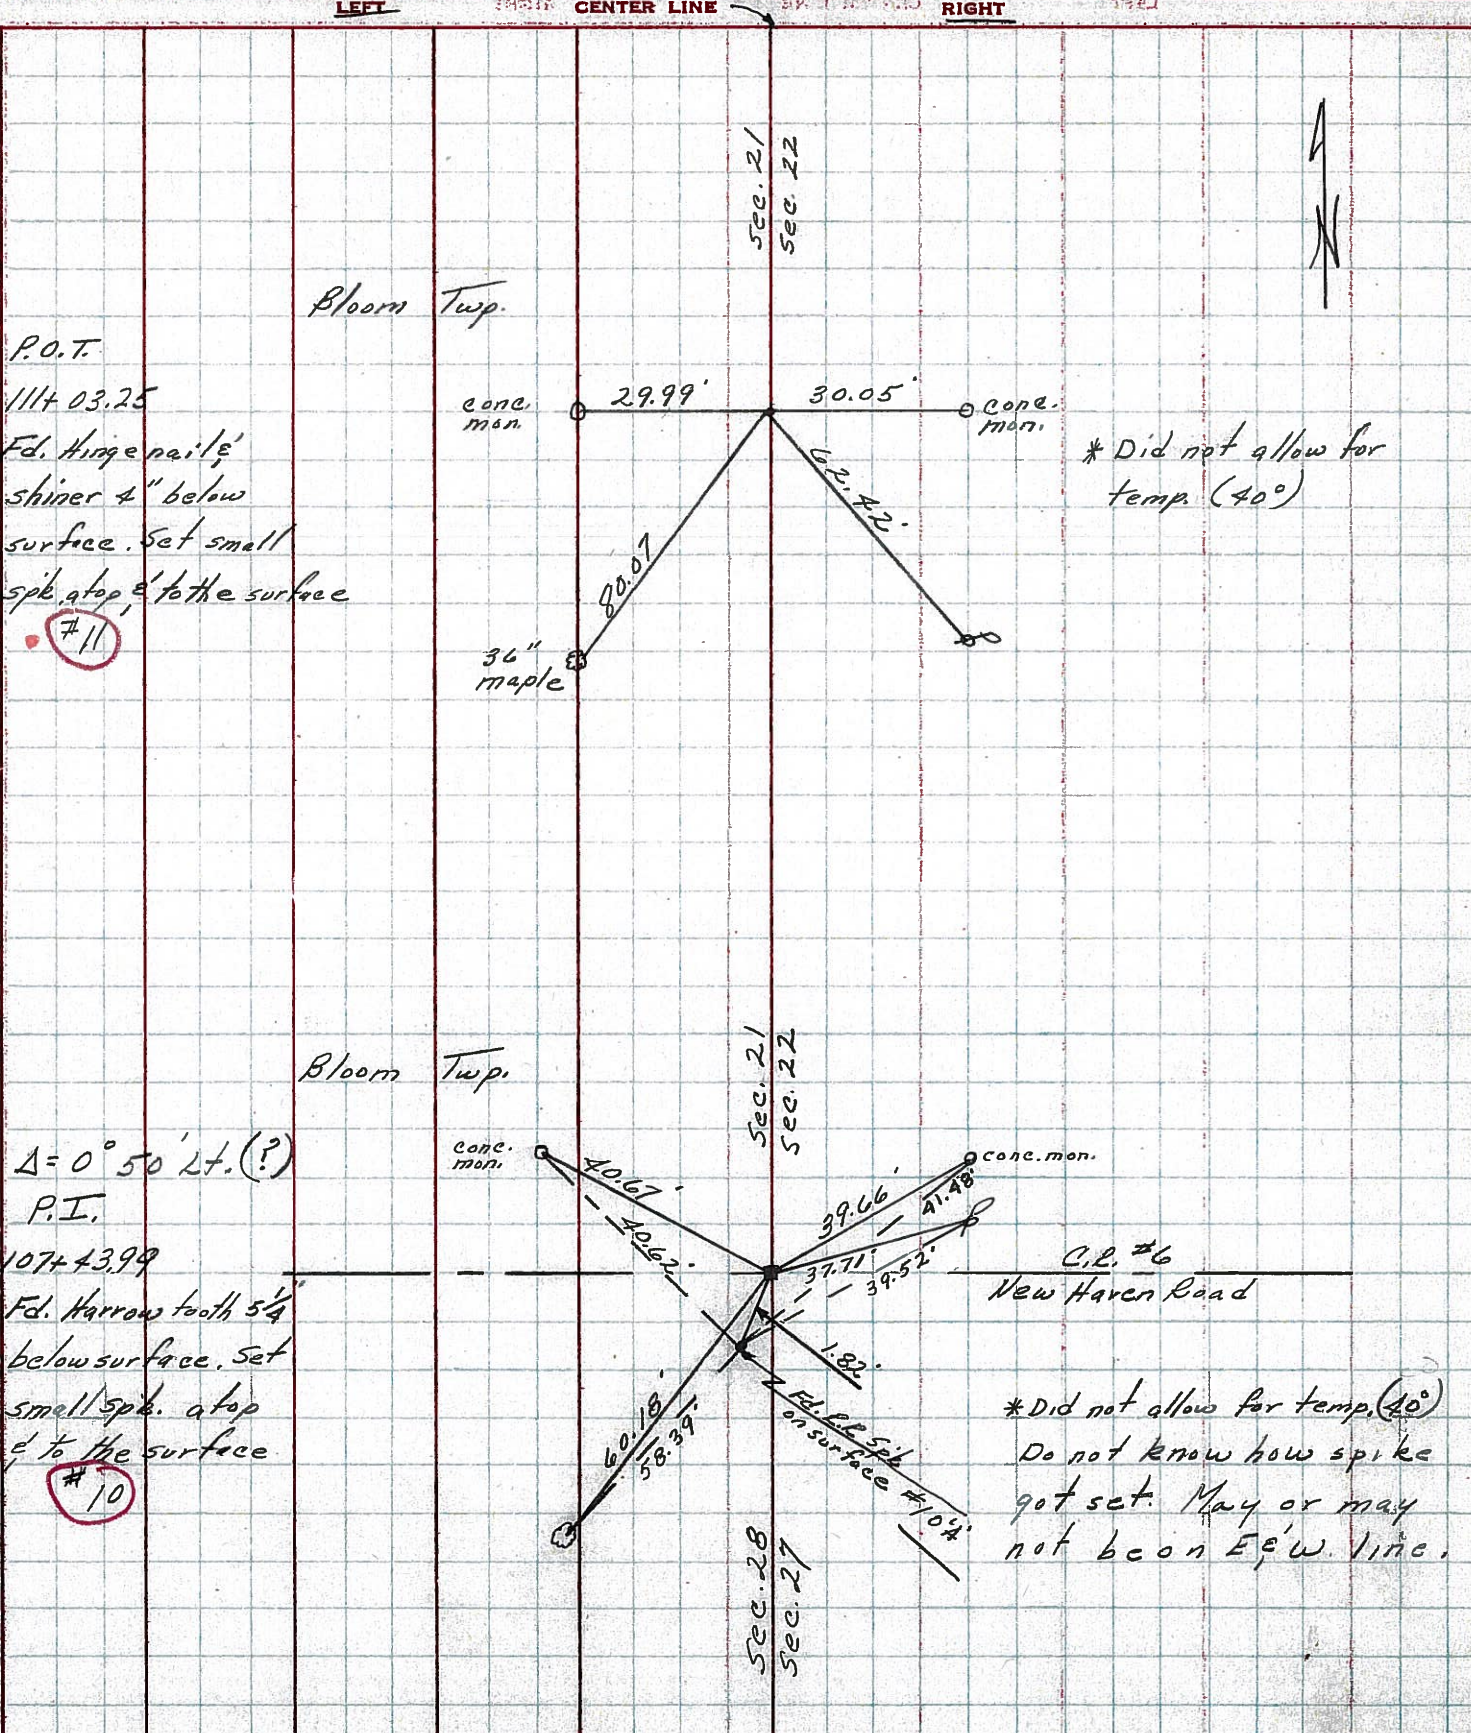 LEFT
CENTER LINE
RIGHT
Sec. 21
Sec. 22
N
Bloom Twp.
P.O.T.
111+03.25
Fd. Hinge nail &
shiner 4" below
surface. Set small
spk. atop & to the surface
#11
conc.
mon.
29.99'
30.05'
conc.
mon.
* Did not allow for
temp. (40°)
62.42'
80.07
36"
maple
Sec. 21
Sec. 22
Bloom Twp.
Δ= 0° 50' Lt. (?)
P.I.
107+43.99
Fd. Harrow tooth 5¼"
below surface. Set
small spk. atop
& to the surface
#10
conc.
mon.
40.67'
40.62'
39.66'
41.48'
conc. mon.
37.71'
39.52'
C.R. #6
New Haven Road
1.82'
Fd. R.R. Spk.
on surface #10A
60.18'
58.39'
* Did not allow for temp. (40°)
Do not know how spike
got set. May or may
not be on E & W. line.
Sec. 28
Sec. 27